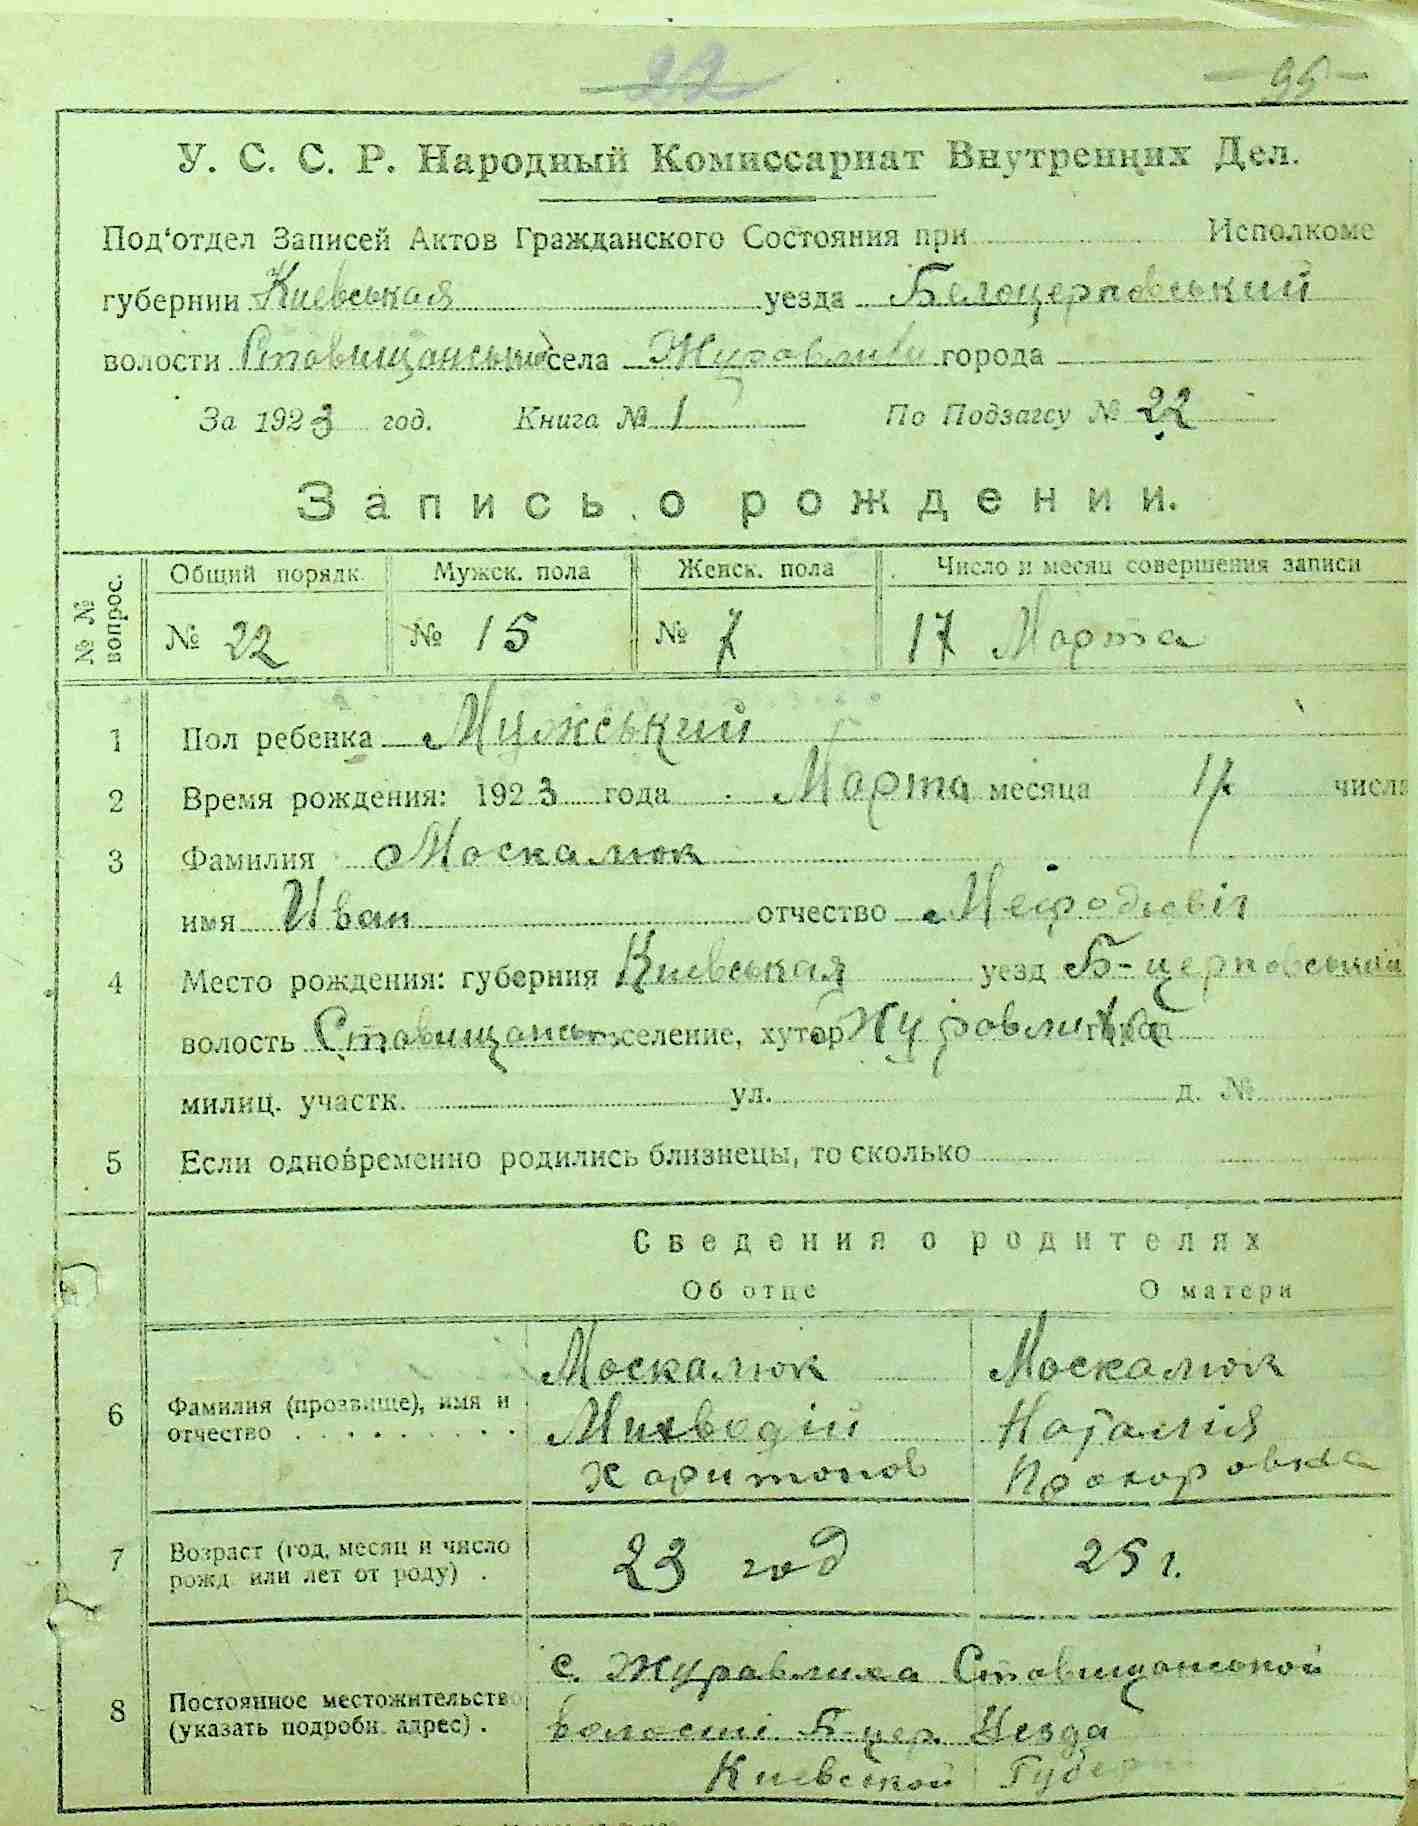 22
95
У. С. С. Р. Народный Комиссариат Внутренних Дел.
Под'отдел Записей Актов Гражданского Состояния при Исполкоме
губернии Киевськая уезда Белоцерковський
волости села города
За 1923 год. Книга № 1 По Подзагсу № 22
Запись о рождении.
№ № вопрос. Общий порядк. Мужск. пола Женск. пола Число и месяц совершения записи
№ 22 № 15 № 7 17 Марта
1 Пол ребенка Мужський
2 Время рождения: 1923 года Марта месяца 17 числа
3 Фамилия Москалюк
имя Иван отчество
4 Место рождения: губерния Киевськая уезд Б-церковський
волость селение, хутор Журавлиха
милиц. участк. ул. д. №
5 Если одновременно родились близнецы, то сколько
Сведения о родителях
Об отце О матери
6 Фамилия (прозвище), имя и отчество Москалюк Москалюк
Наталия
Харитонов Прохоровна
7 Возраст (год, месяц и число рожд. или лет от роду) . 23 год 25 г.
8 Постоянное местожительство (указать подробн. адрес) . с. Журавлиха Ставищанской
волости Б-цер. Уезда
Киевской